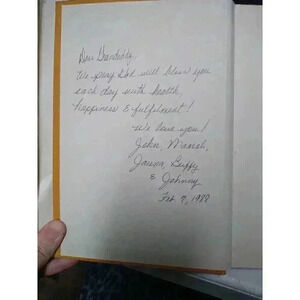 Dear Grandaddy,
We pray God will bless you
each day with health,
happiness & fulfillment!
We love you!
John, Marsh,
Buffy
& Johnny
Feb. 7, 1988